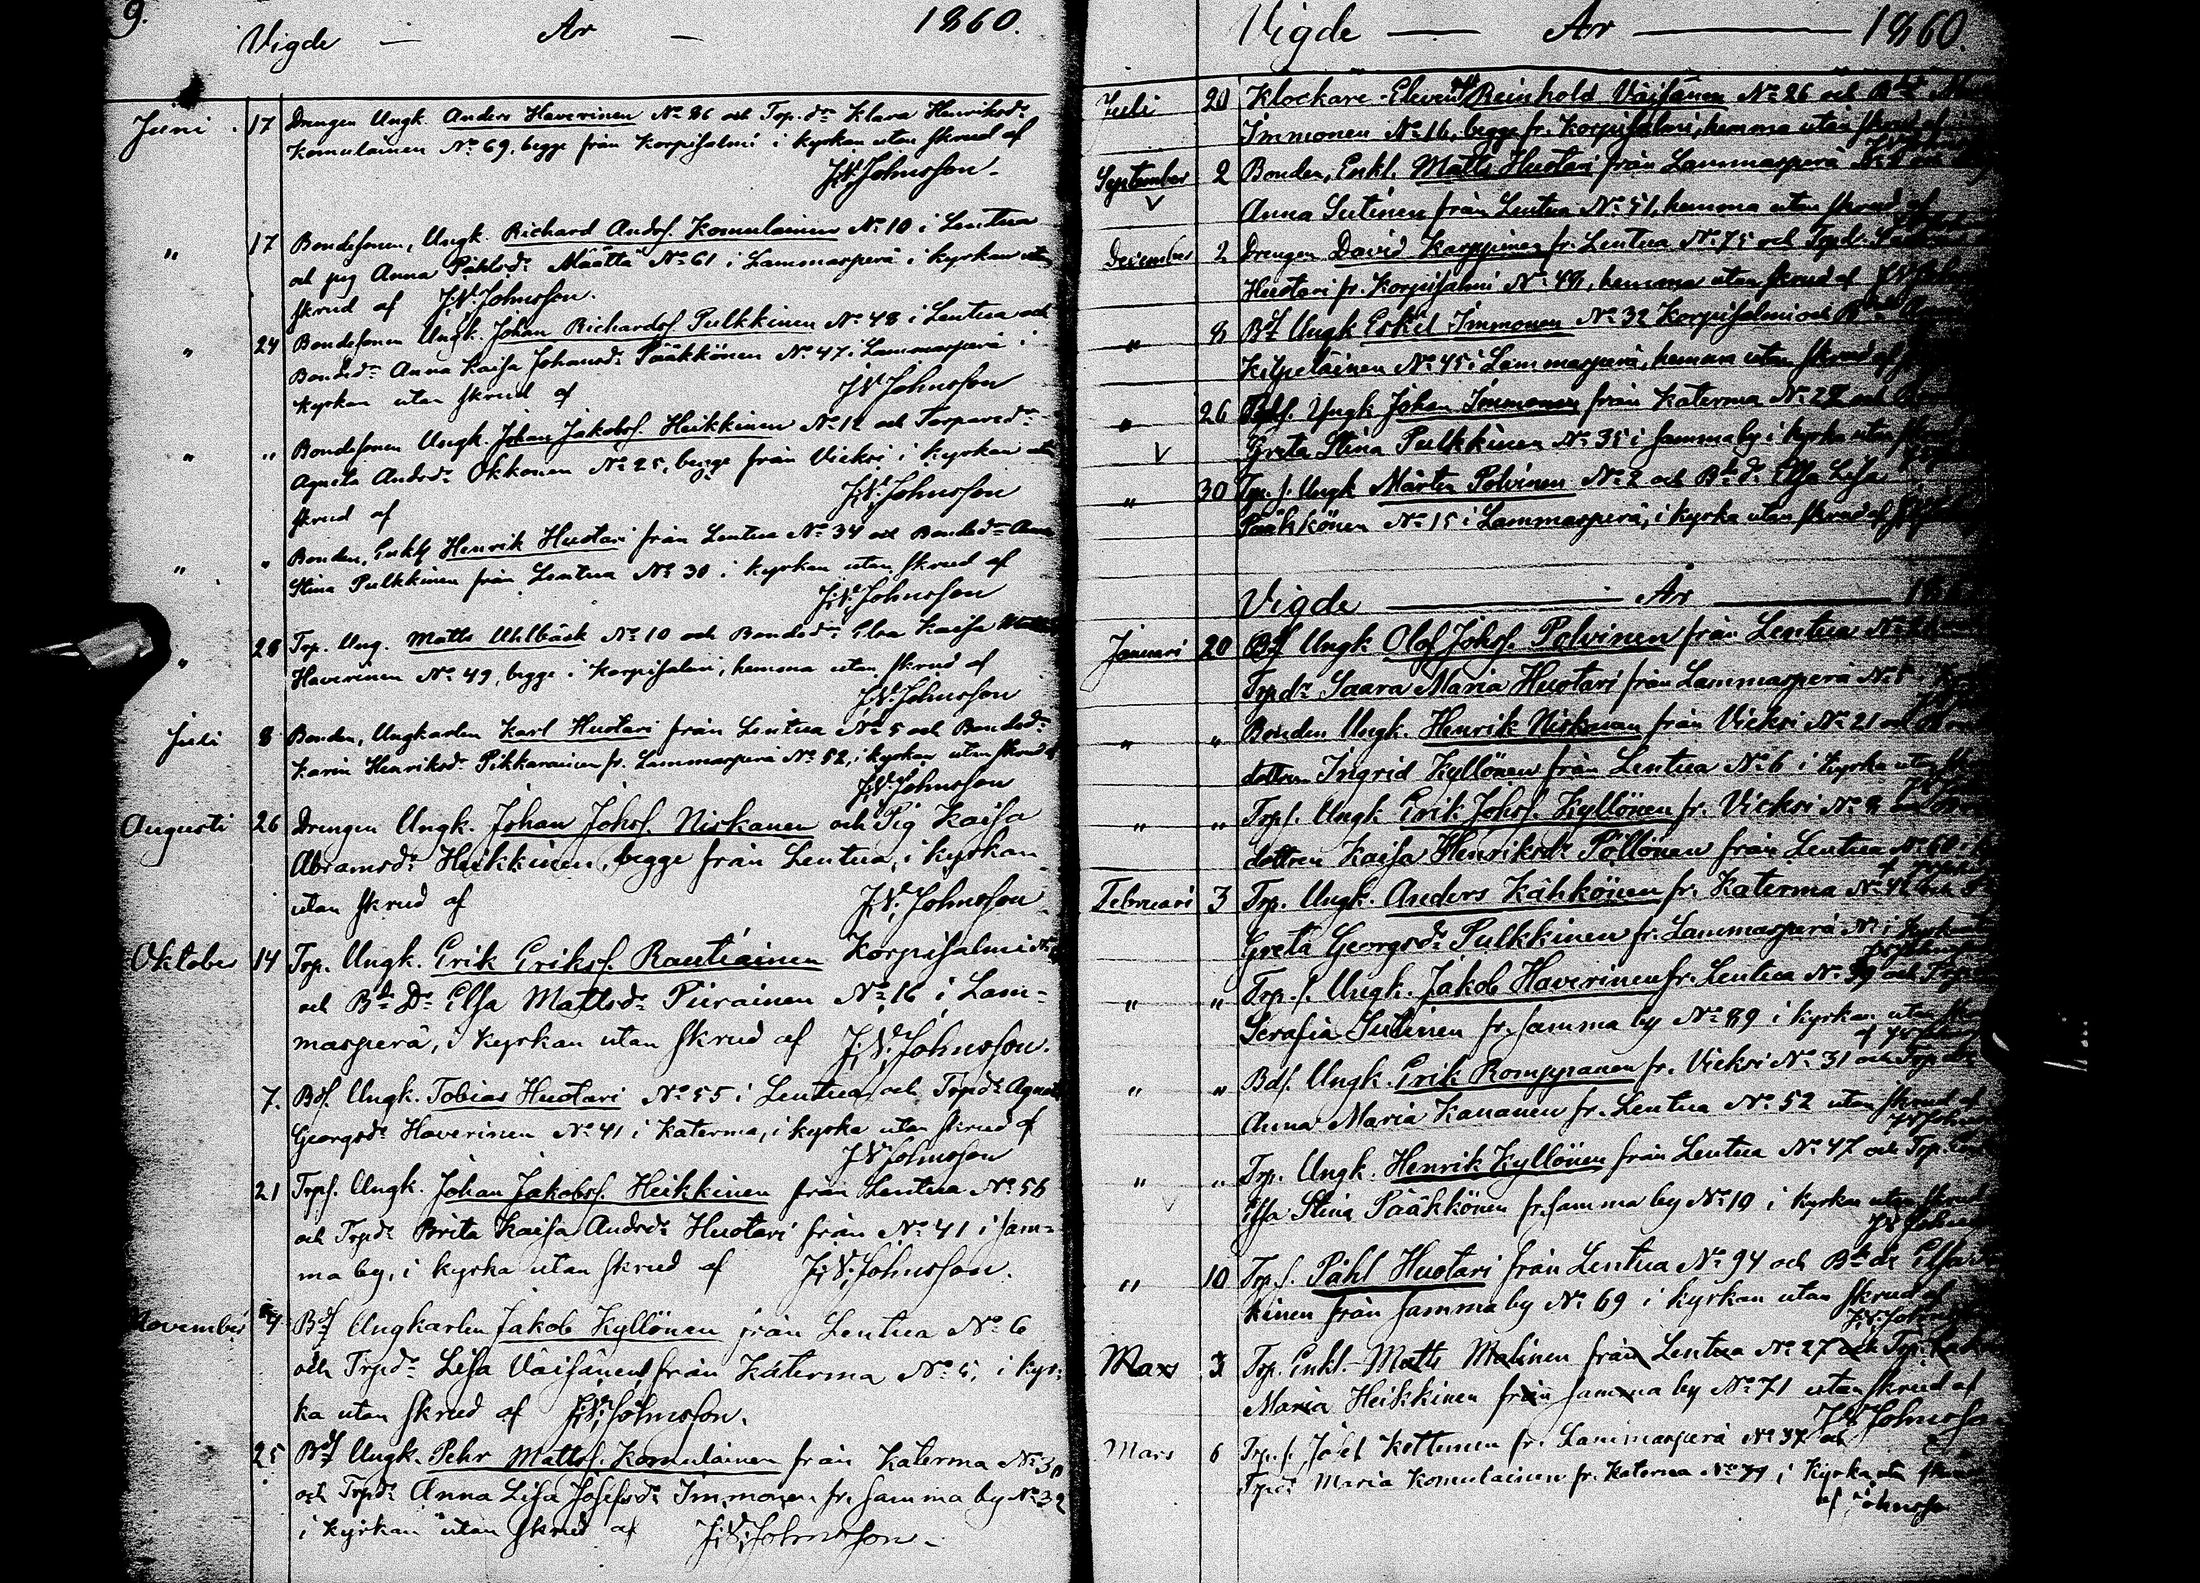 9.
Vigde — År — 1860.
Juni 17 Drengen Ungk. Anders Haverinen No 86 och Torp.dr Klara Henriksdr
Komulainen No 69, begge från Korpisalmi i kyrkan utan skrud af
J.V. Johnsson.
" 17 Bondesonen, Ungk. Richard Andsf. Komulainen No 10 i Lentua
och pig Anna Påhlsdr Määttä No 61 i Lammasperä i kyrkan utan
skrud af J.V. Johnsson.
" 24 Bondesonen Ungk. Johan Richardsf. Pulkkinen No 48 i Lentua och
Bondedr Anna Kaisa Johansdr Pääkkönen No 47 i Lammasperä i
kyrkan utan skrud af J.V. Johnsson
" " Bondesonen Ungk. Johan Jakobsf. Heikkinen No 12 och Torparedr
Agneta Andsdr Okkonen No 25, begge från Vieksi i kyrkan utan
skrud af J.V. Johnsson
" " Bonden, Enkl. Henrik Huotari från Lentua No 34 och Bondedr Anna
Stina Pulkkinen från Lentua No 30 i kyrkan utan skrud af
J.V. Johnsson
" 28 Trp. Ung. Matts Uhlbäck No 10 och Bondedr Elva Kaisa
Haverinen No 49, begge i Korpisalmi, hemma utan skrud af
J.V. Johnsson
Juli 8 Bonden, Ungkarlen Karl Huotari från Lentua No 5 och Bondedr
Karin Henriksdr Pikkarainen fr. Lammasperä No 52, i kyrkan utan skrud af
J.V. Johnsson
Augusti 26 Drengen Ungk. Johan Johsf. Niskanen och Pig Kaisa
Abramsdr Heikkinen, begge från Lentua, i kyrkan
utan skrud af J.V. Johnsson
Oktober 14 Trp. Ungk. Erik Eriksf. Rautiainen Korpisalmi No
och Bd Dr Elsa Mattsdr Piirainen No 16 i Lam=
masperä, i kyrkan utan skrud af J.V. Johnsson.
7. Bdf. Ungk. Tobias Huotari No 55 i Lentua och Trpdr Agneta
Georgsdr Haverinen No 41 i Katerma, i kyrka utan skrud af
J.V. Johnsson
21 Trpf. Ungk. Johan Jakobsf. Heikkinen från Lentua No 56
och Trpdr Brita Kaisa Andsdr Huotari från No 41 i sam=
ma by, i kyrka utan skrud af J.V. Johnsson.
November 4 Bdf Ungkarlen Jakob Kyllönen från Lentua No 6
och Trpdr Lisa Väisänen från Katerma No 5, i kyr=
ka utan skrud af J.V. Johnsson.
25 Bdf Ungk. Pehr Mattsf. Komulainen från Katerma No 30
och Trpdr Anna Lisa Josefsdr Immonen fr. samma by No 32
i kyrkan utan skrud af J.V. Johnsson.
Vigde — År — 1860.
Juli 20 Klockare-Eleven Reinhold Väisänen No 26 och
Immonen No 16, begge fr. Korpisalmi, hemma utan skrud af
September 2 Bonden, Enkl. Matts Huotari från Lammasperä
Anna Sutinen från Lentua No 51, hemma utan skrud af
December 2 Drengen David Karppinen fr. Lentua No 75 och
Huotari fr. Korpisalmi No 49, hemma utan skrud af
" 8 Bdf Ungk Eskil Immonen No 32 Korpisalmi och
Kilpeläinen No 45 i Lammasperä, hemma utan skrud af
" 26 Ungk Johan Immonen från Katerma No 27 och
Greta Stina Pulkkinen No 35 i samma by i kyrka utan skrud
" 30 Trp. f. Ungk Mårten Polvinen No 2 och Bd. dr Elsa Lisa
Pääkkönen No 15 i Lammasperä, i kyrka utan skrud af
Vigde — År —
Januari 20 Bdf Ungk Olof Johsf. Polvinen från Lentua
Trpdr Saara Maria Huotari från Lammasperä No
" " Bonden Ungk. Henrik Niskanen från Vieksi No 21 och
dottren Ingrid Kyllönen från Lentua No 6 i kyrka utan
" " Trpf. Ungk Erik Johsf. Kyllönen fr. Vieksi No 8
dottren Kaisa Henriksdr Pöllönen från Lentua No 60
Februari 3 Trp. Ungk. Anders Kähkönen fr. Katerma No 42
Greta Georgsdr Pulkkinen fr. Lammasperä No i kyrk
" " Trp. f. Ungk. Jakob Haverinen fr. Lentua No 39 och
Serafia Sutinen fr. samma by No 89 i kyrkan utan
" " Bdf. Ungk. Erik Romppanen fr. Vieksi No 31 och
Anna Maria Kananen fr. Lentua No 52 utan skrud af
" " Trp. Ungk. Henrik Kyllönen från Lentua No 47 och Trp.
Elsa Stina Pääkkönen fr. samma by No 10 i kyrkan utan skrud
" 10 Trp. f. Påhl Huotari från Lentua No 94 och Bd. dr Elsa
kinen från samma by No 69 i kyrkan utan skrud af
Mars 3 Trp. Enkl. Matts Malinen från Lentua No 27 och
Maria Heikkinen från samma by No 71 utan skrud af
J.V. Johnsson
Mars 6 Trp. f. Josef Kettunen fr. Lammasperä No 37 och
Trpdr Maria Komulainen fr. Katerma No i kyrka utan
af Johnsson